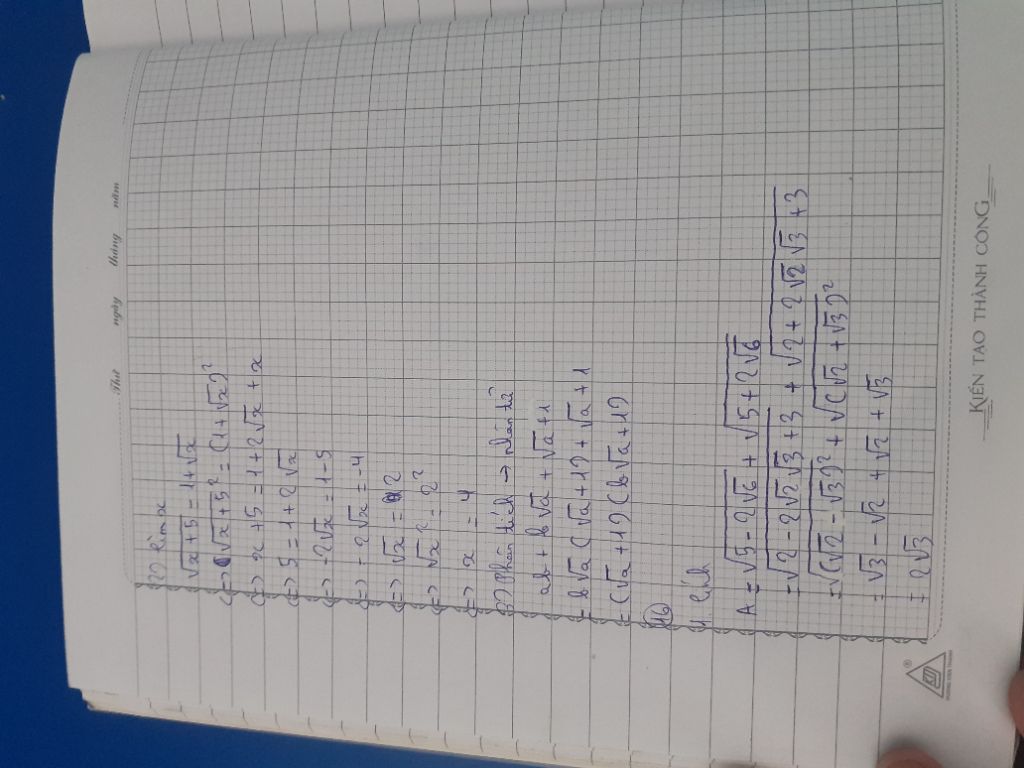 Thứ ngày tháng năm
2) Tìm x
√x+5 = 1+√x
<=> √x+5² = (1+√x)²
<=> x+5 = 1+2√x+x
<=> 5 = 1+2√x
<=> -2√x = 1-5
<=> -2√x = -4
<=> √x = 2
<=> √x² = 2²
<=> x = 4
3) Phân tích → nhân tử
ab + b√a + √a + 1
= b√a(√a+1) + √a + 1
= (√a+1)(b√a+1)
16
1, Tính
A = √5-2√6 + √5+2√6
= √2-2√2√3+3 + √2+2√2√3+3
= √(√2-√3)² + √(√2+√3)²
= √3 - √2 + √2 + √3
= 2√3
KIẾN TẠO THÀNH CÔNG